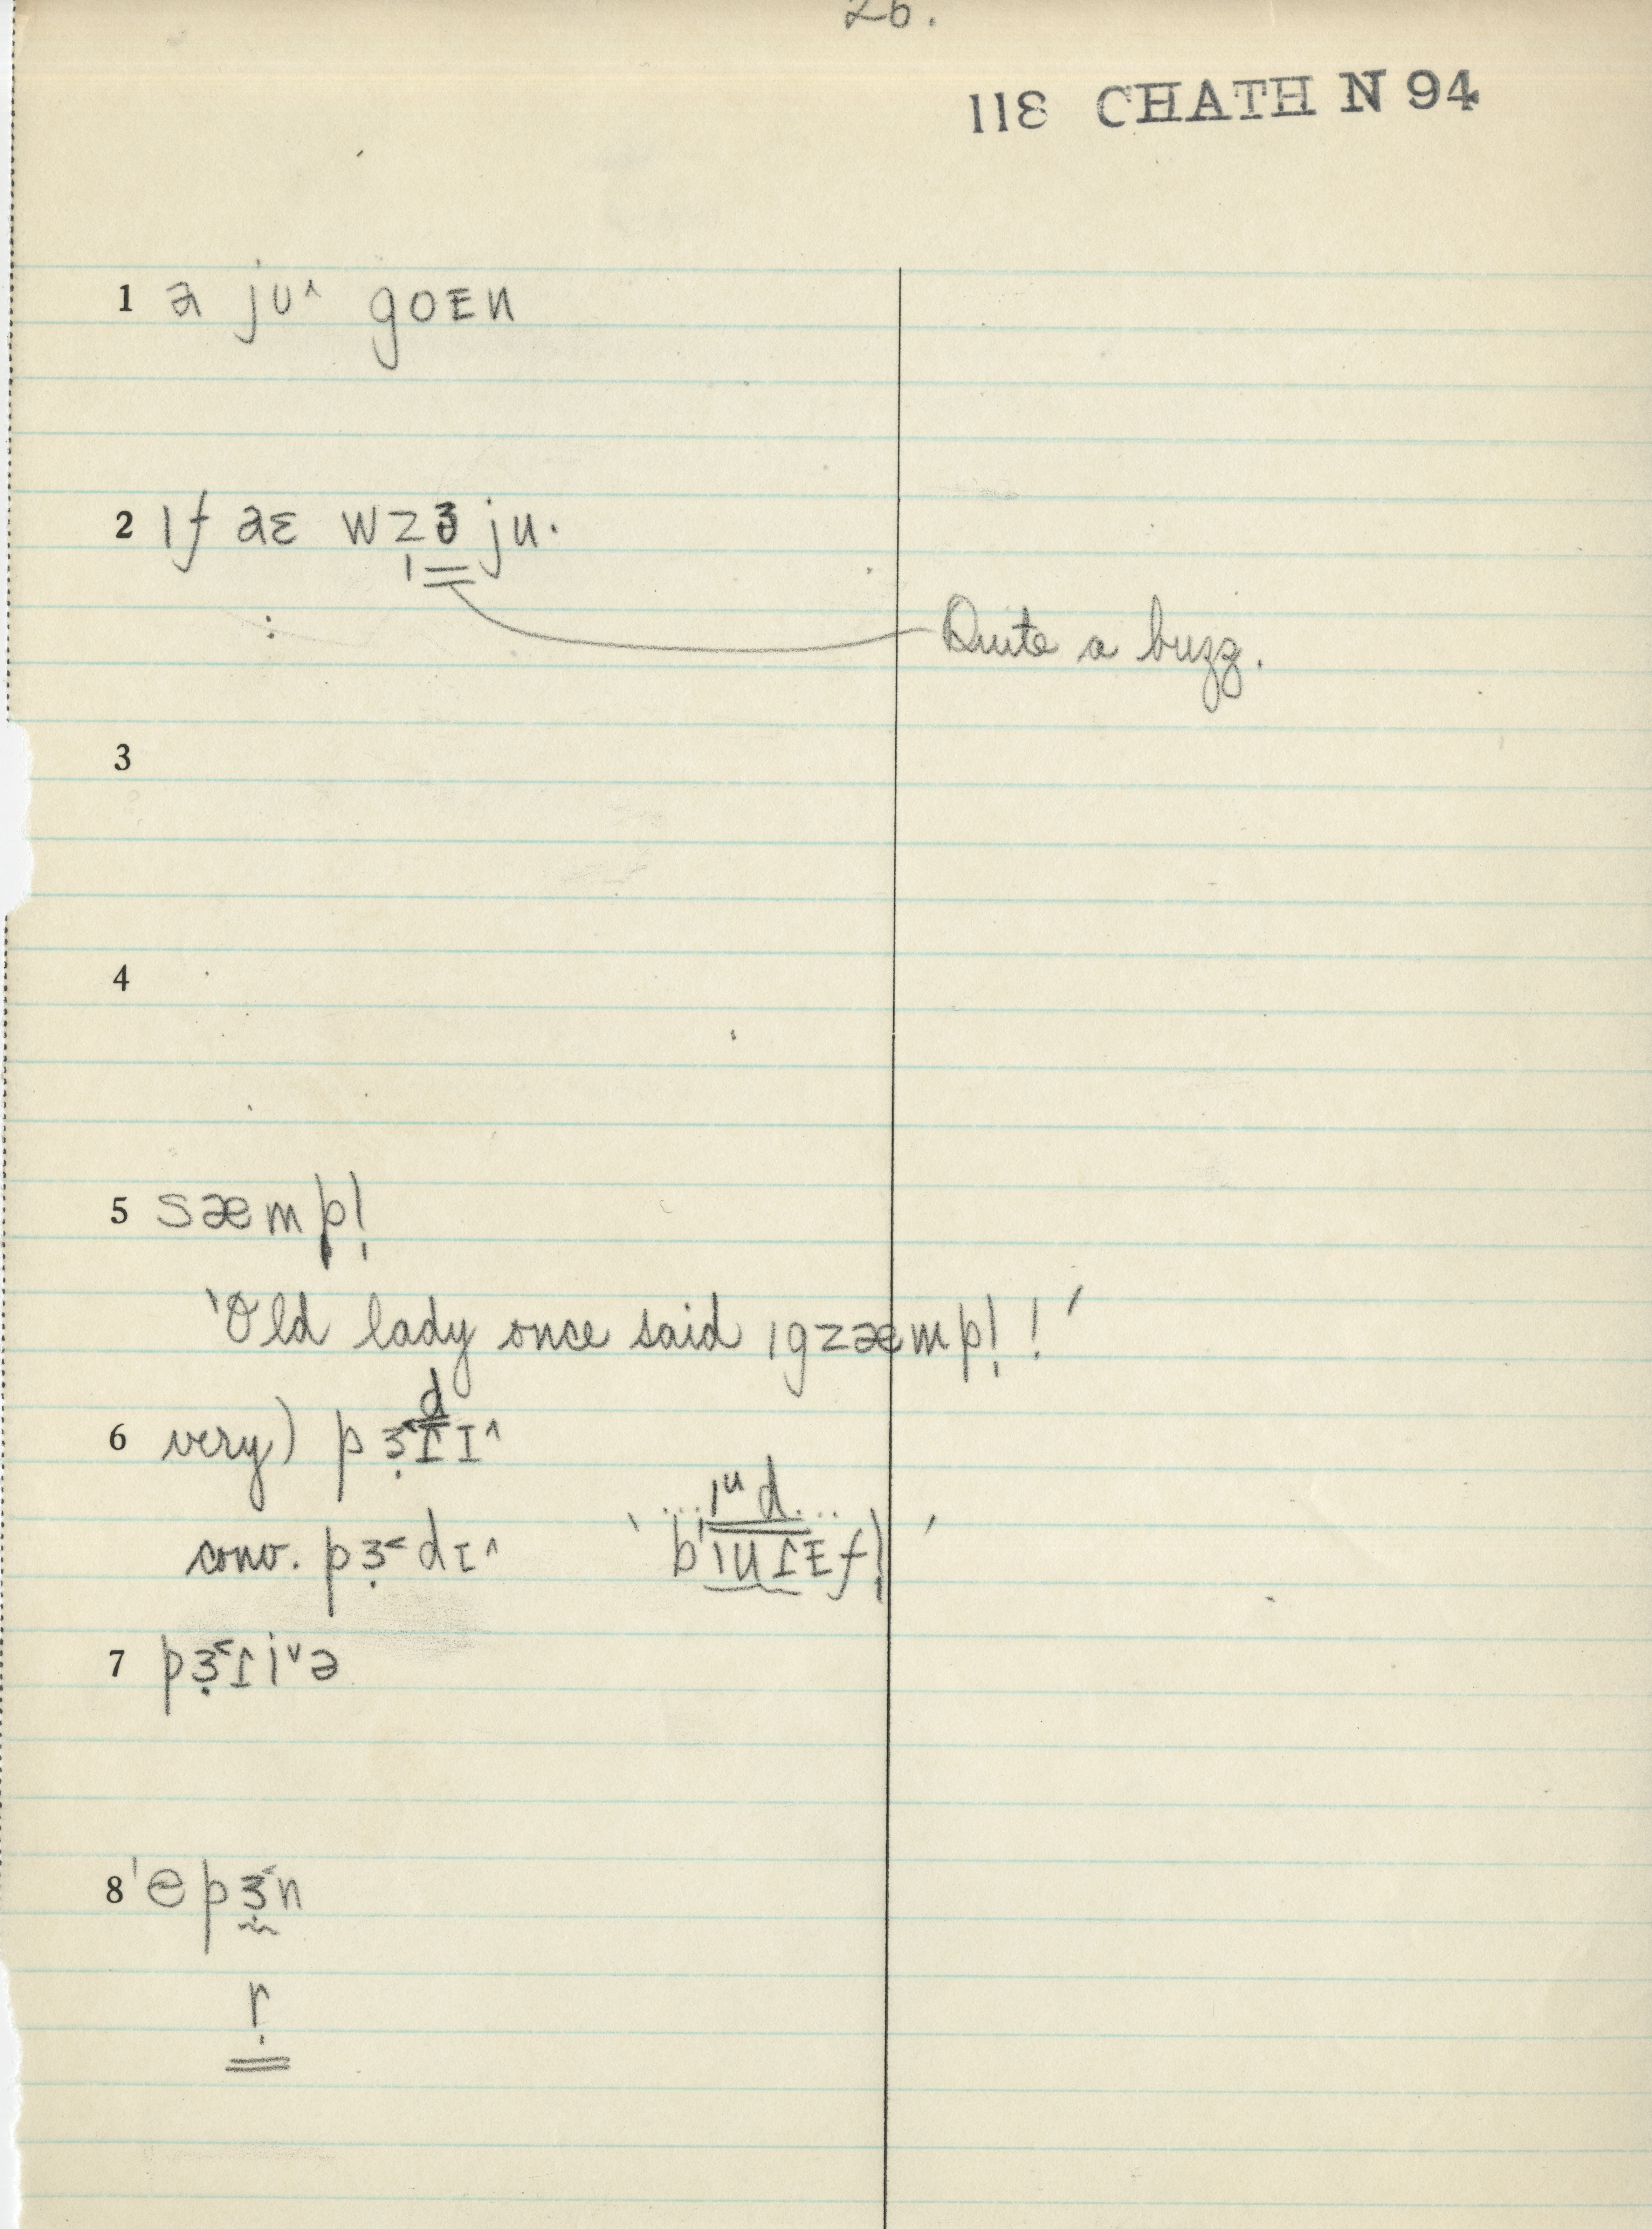 26.
118 CHATH N 94
1 a ju^ goᴇn
2 ɪf aɛ wz̩ʒ ju.
Quite a buzz.
3
4
5 sæmpl̩
'Old lady once said ɪgzæmpl̩!'
6 very) pɜ̣˂ɾɪ^
d
conv. pɜ̣˂dɪ^ 'bɪuɾɪfl̩'
...ɪᵘd...
7 pɜ̣˂ɾiˇə
8 'epɜ̣˂n
ṛ